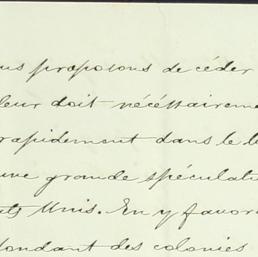 us proposons de céder
leur doit nécessaireme
rapidement dans le b
une grande spéculati
ats Unis. En y favor
fondant des colonies